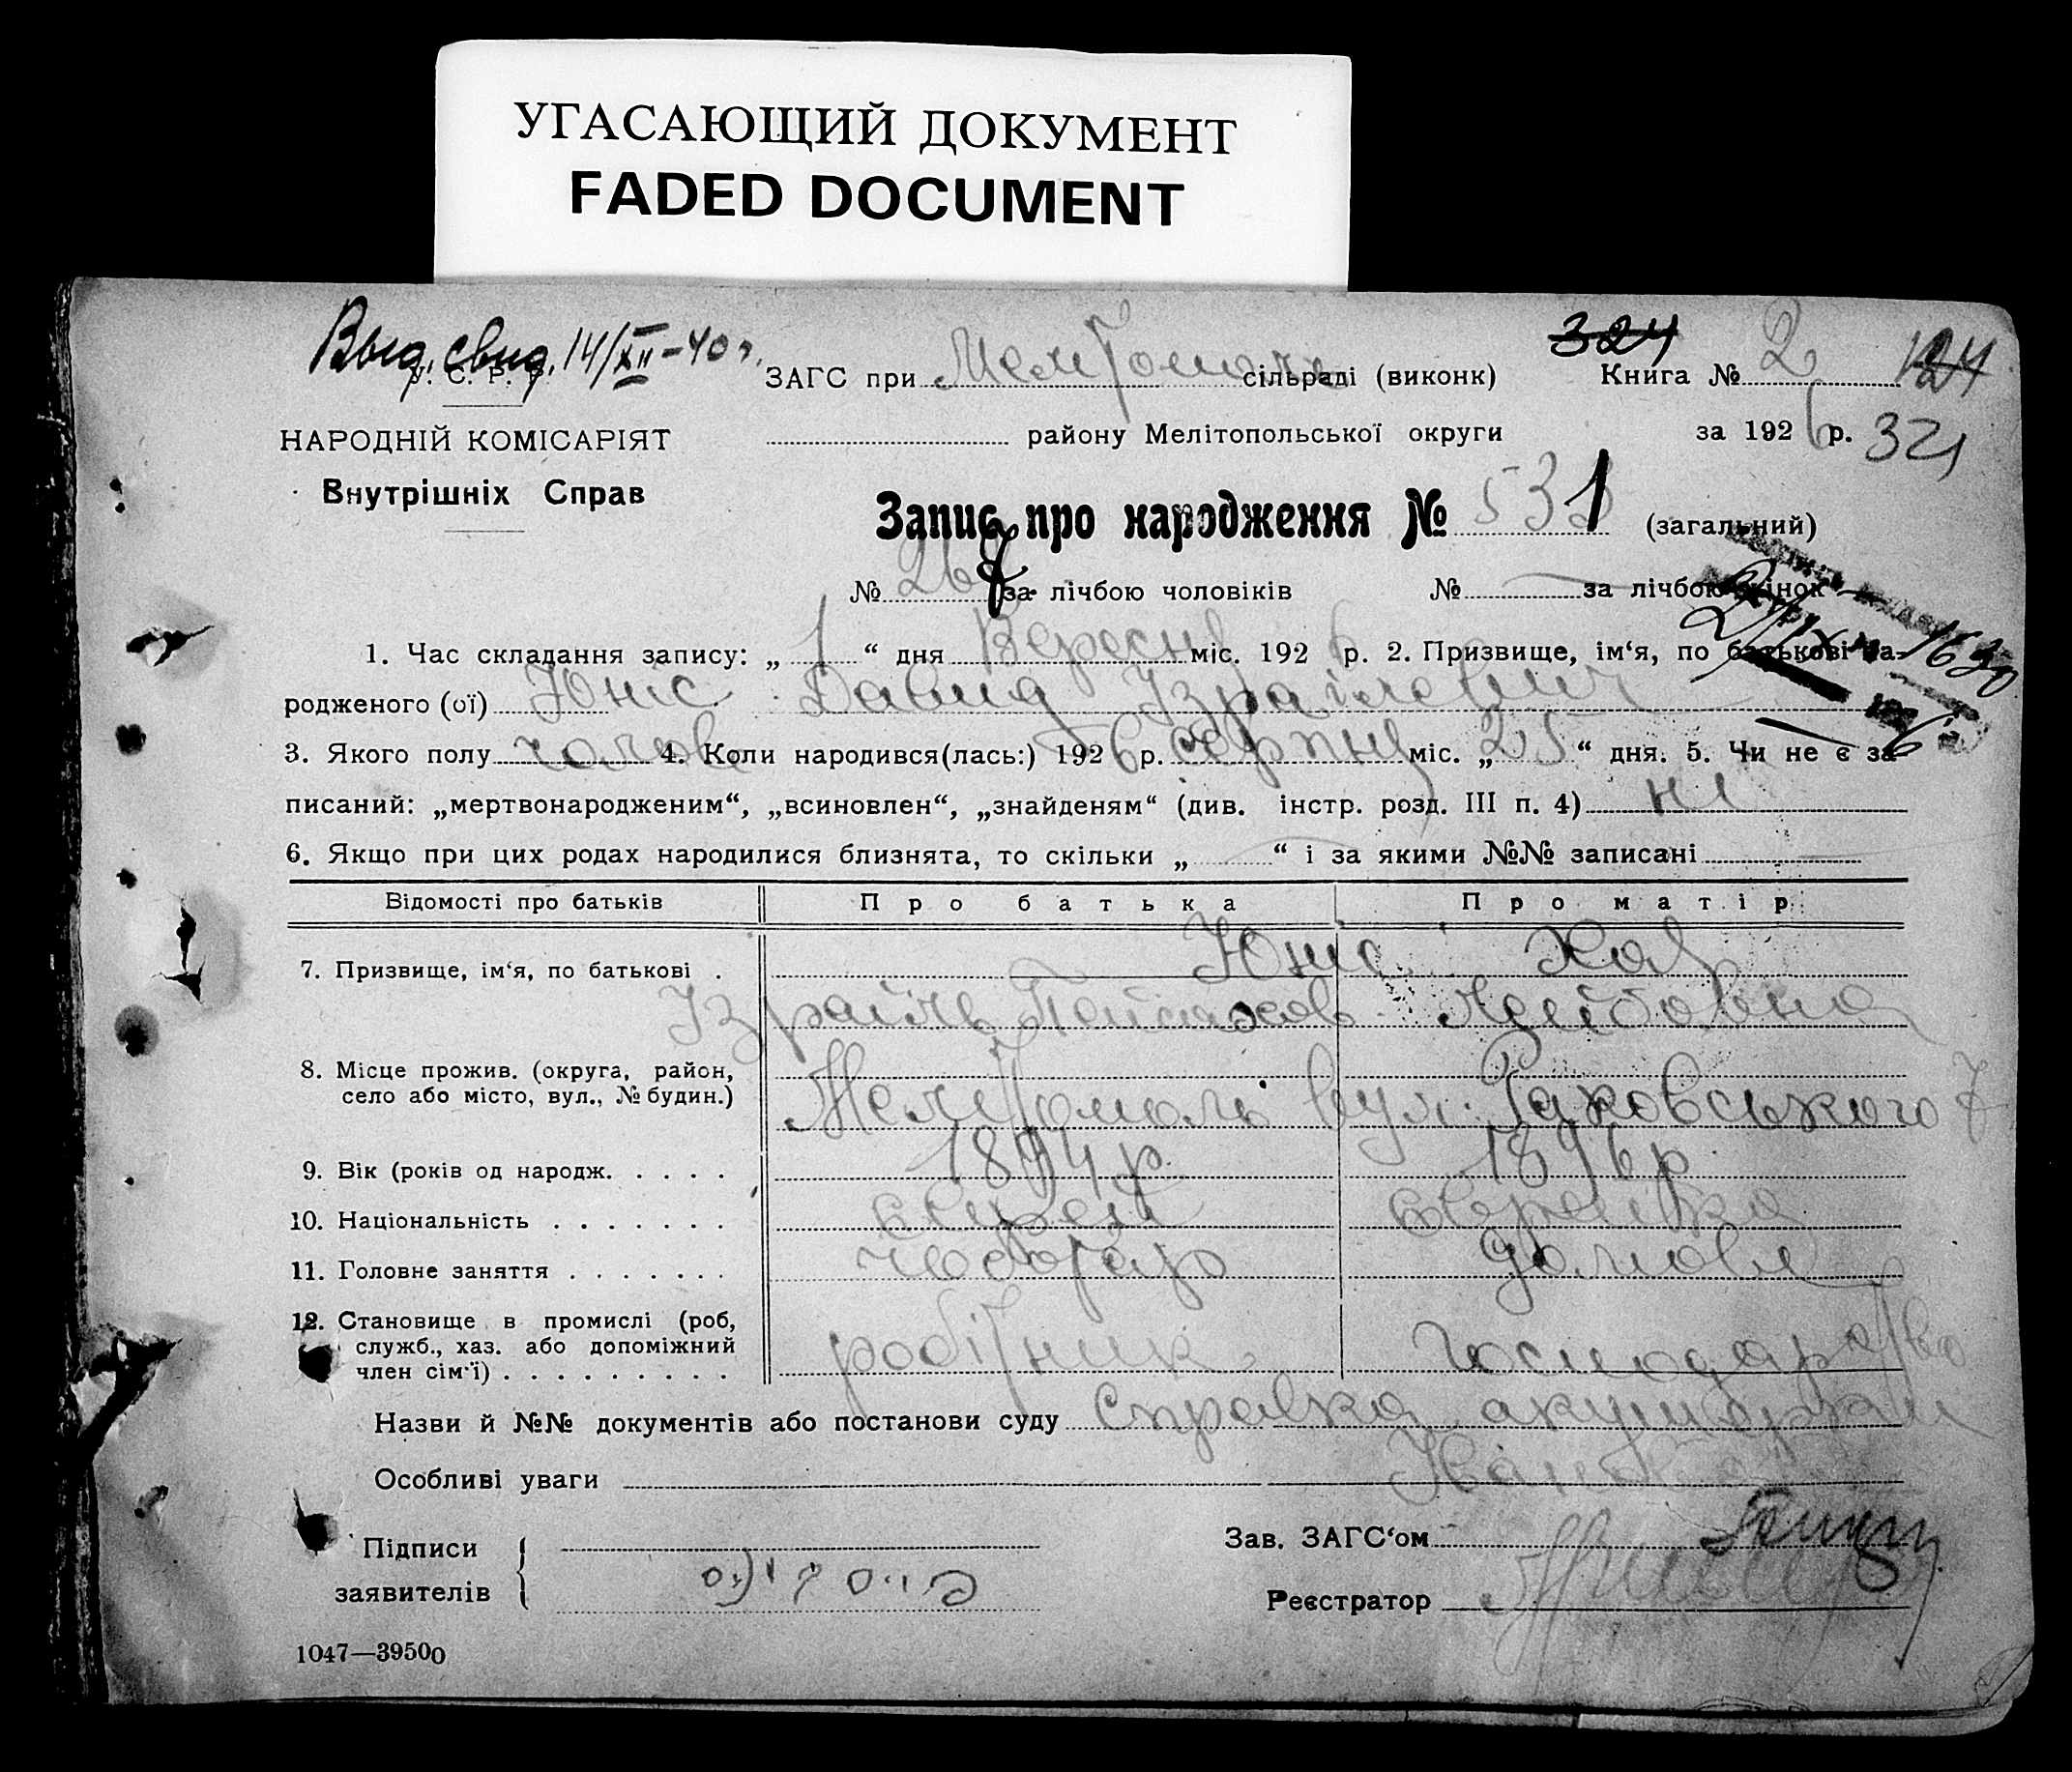 УГАСАЮЩИЙ ДОКУМЕНТ
FADED DOCUMENT
Выд. свид. 14/XII-40 г.
У. С. Р. Р.
НАРОДНІЙ КОМІСАРІЯТ
Внутрішніх Справ
324
ЗАГС при сільраді (виконк) Книга № 2 124
району Мелітопольської округи за 1926 р. 321
Запис про народження № 531 (загальний)
№ 267 за лічбою чоловіків № за лічбою жінок
1630
1. Час складання запису: „ 1 “ дня Вересня міс. 1926 р. 2. Призвище, ім‘я, по батькові на-
родженого (ої) Юніс Давид Ізраілевич
3. Якого полу чолов 4. Коли народився(лась:) 1926 р. серпня міс. „ 25 “ дня. 5. Чи не є за
писаний: „мертвонародженим“, „всиновлен“, „знайденям“ (див. інстр. розд. III п. 4) ні
6. Якщо при цих родах народилися близнята, то скільки „ “ і за якими №№ записані
Відомості про батьків Про батька Про матір
7. Призвище, ім‘я, по батькові . Юніс Хая
Ізраїль Пейсахов Лейбовна
8. Місце прожив. (округа, район,
село або місто, вул., № будин.) Мелітополь вул. Раковського 7
9. Вік (років од народж. . . . . 1894 р. 1896 р.
10. Національність . . . . . . . еврей еврейка
11. Головне заняття . . . . . . . чоботарь домове
12. Становище в промислі (роб,
служб., хаз. або допоміжний
член сім‘ї) . . . . . . . . . робітник господарство
Назви й №№ документів або постанови суду Справка акушерки
Особливі уваги
Підписи
заявителів
Зав. ЗАГС‘ом
Реєстратор
1047—39500